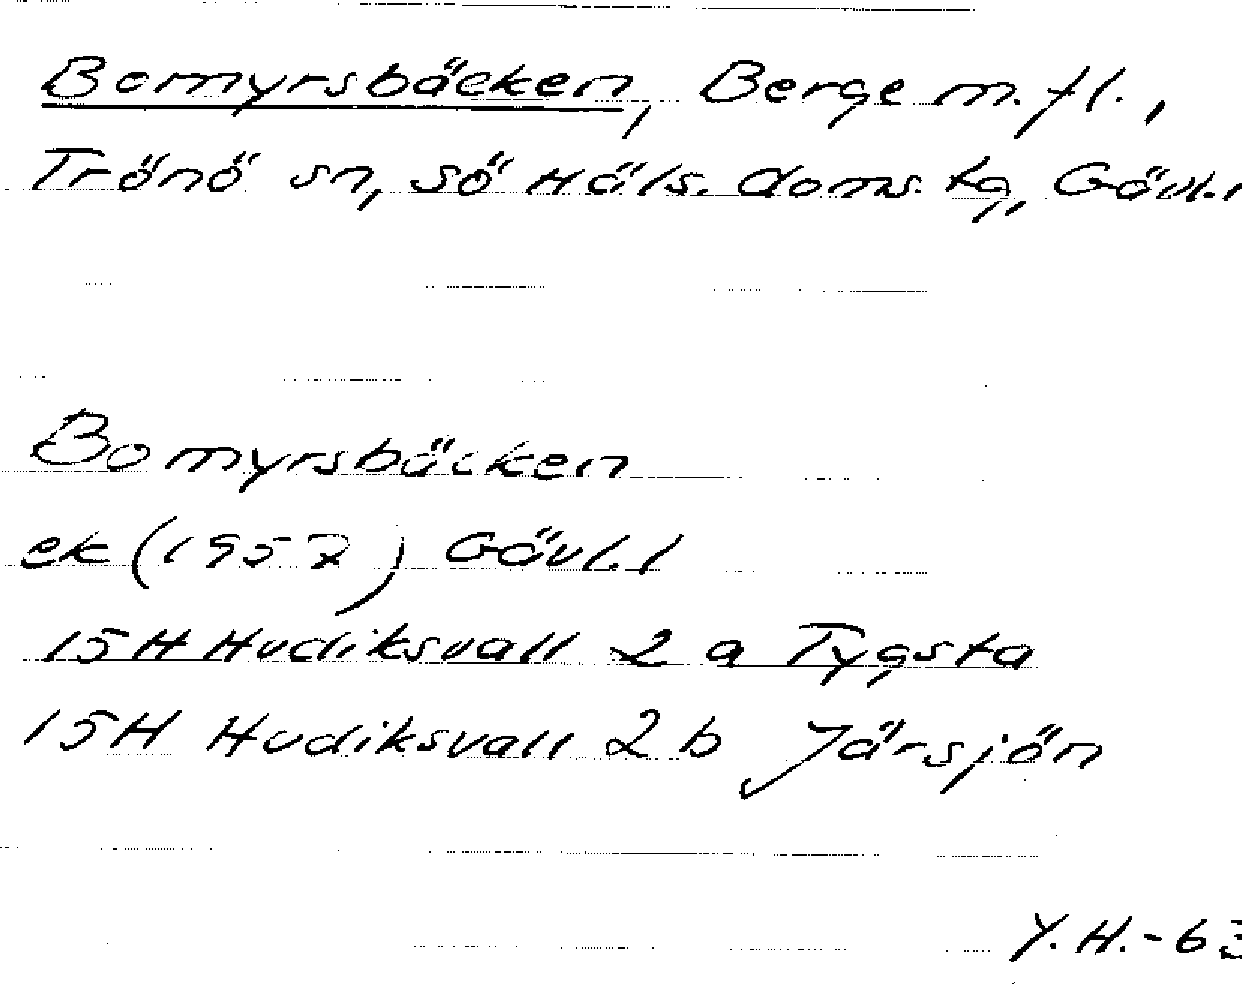 Bomyrsbäcken, Berge m.fl.,
Trönö sn, Sö Häls. doms. tg, Gävl.l
Bomyrsbäcken
ek (1957) Gävl.l
15H Hudiksvall 2 a Tygsta
15H Hudiksvall 2 b Järsjön
Y.H.-63